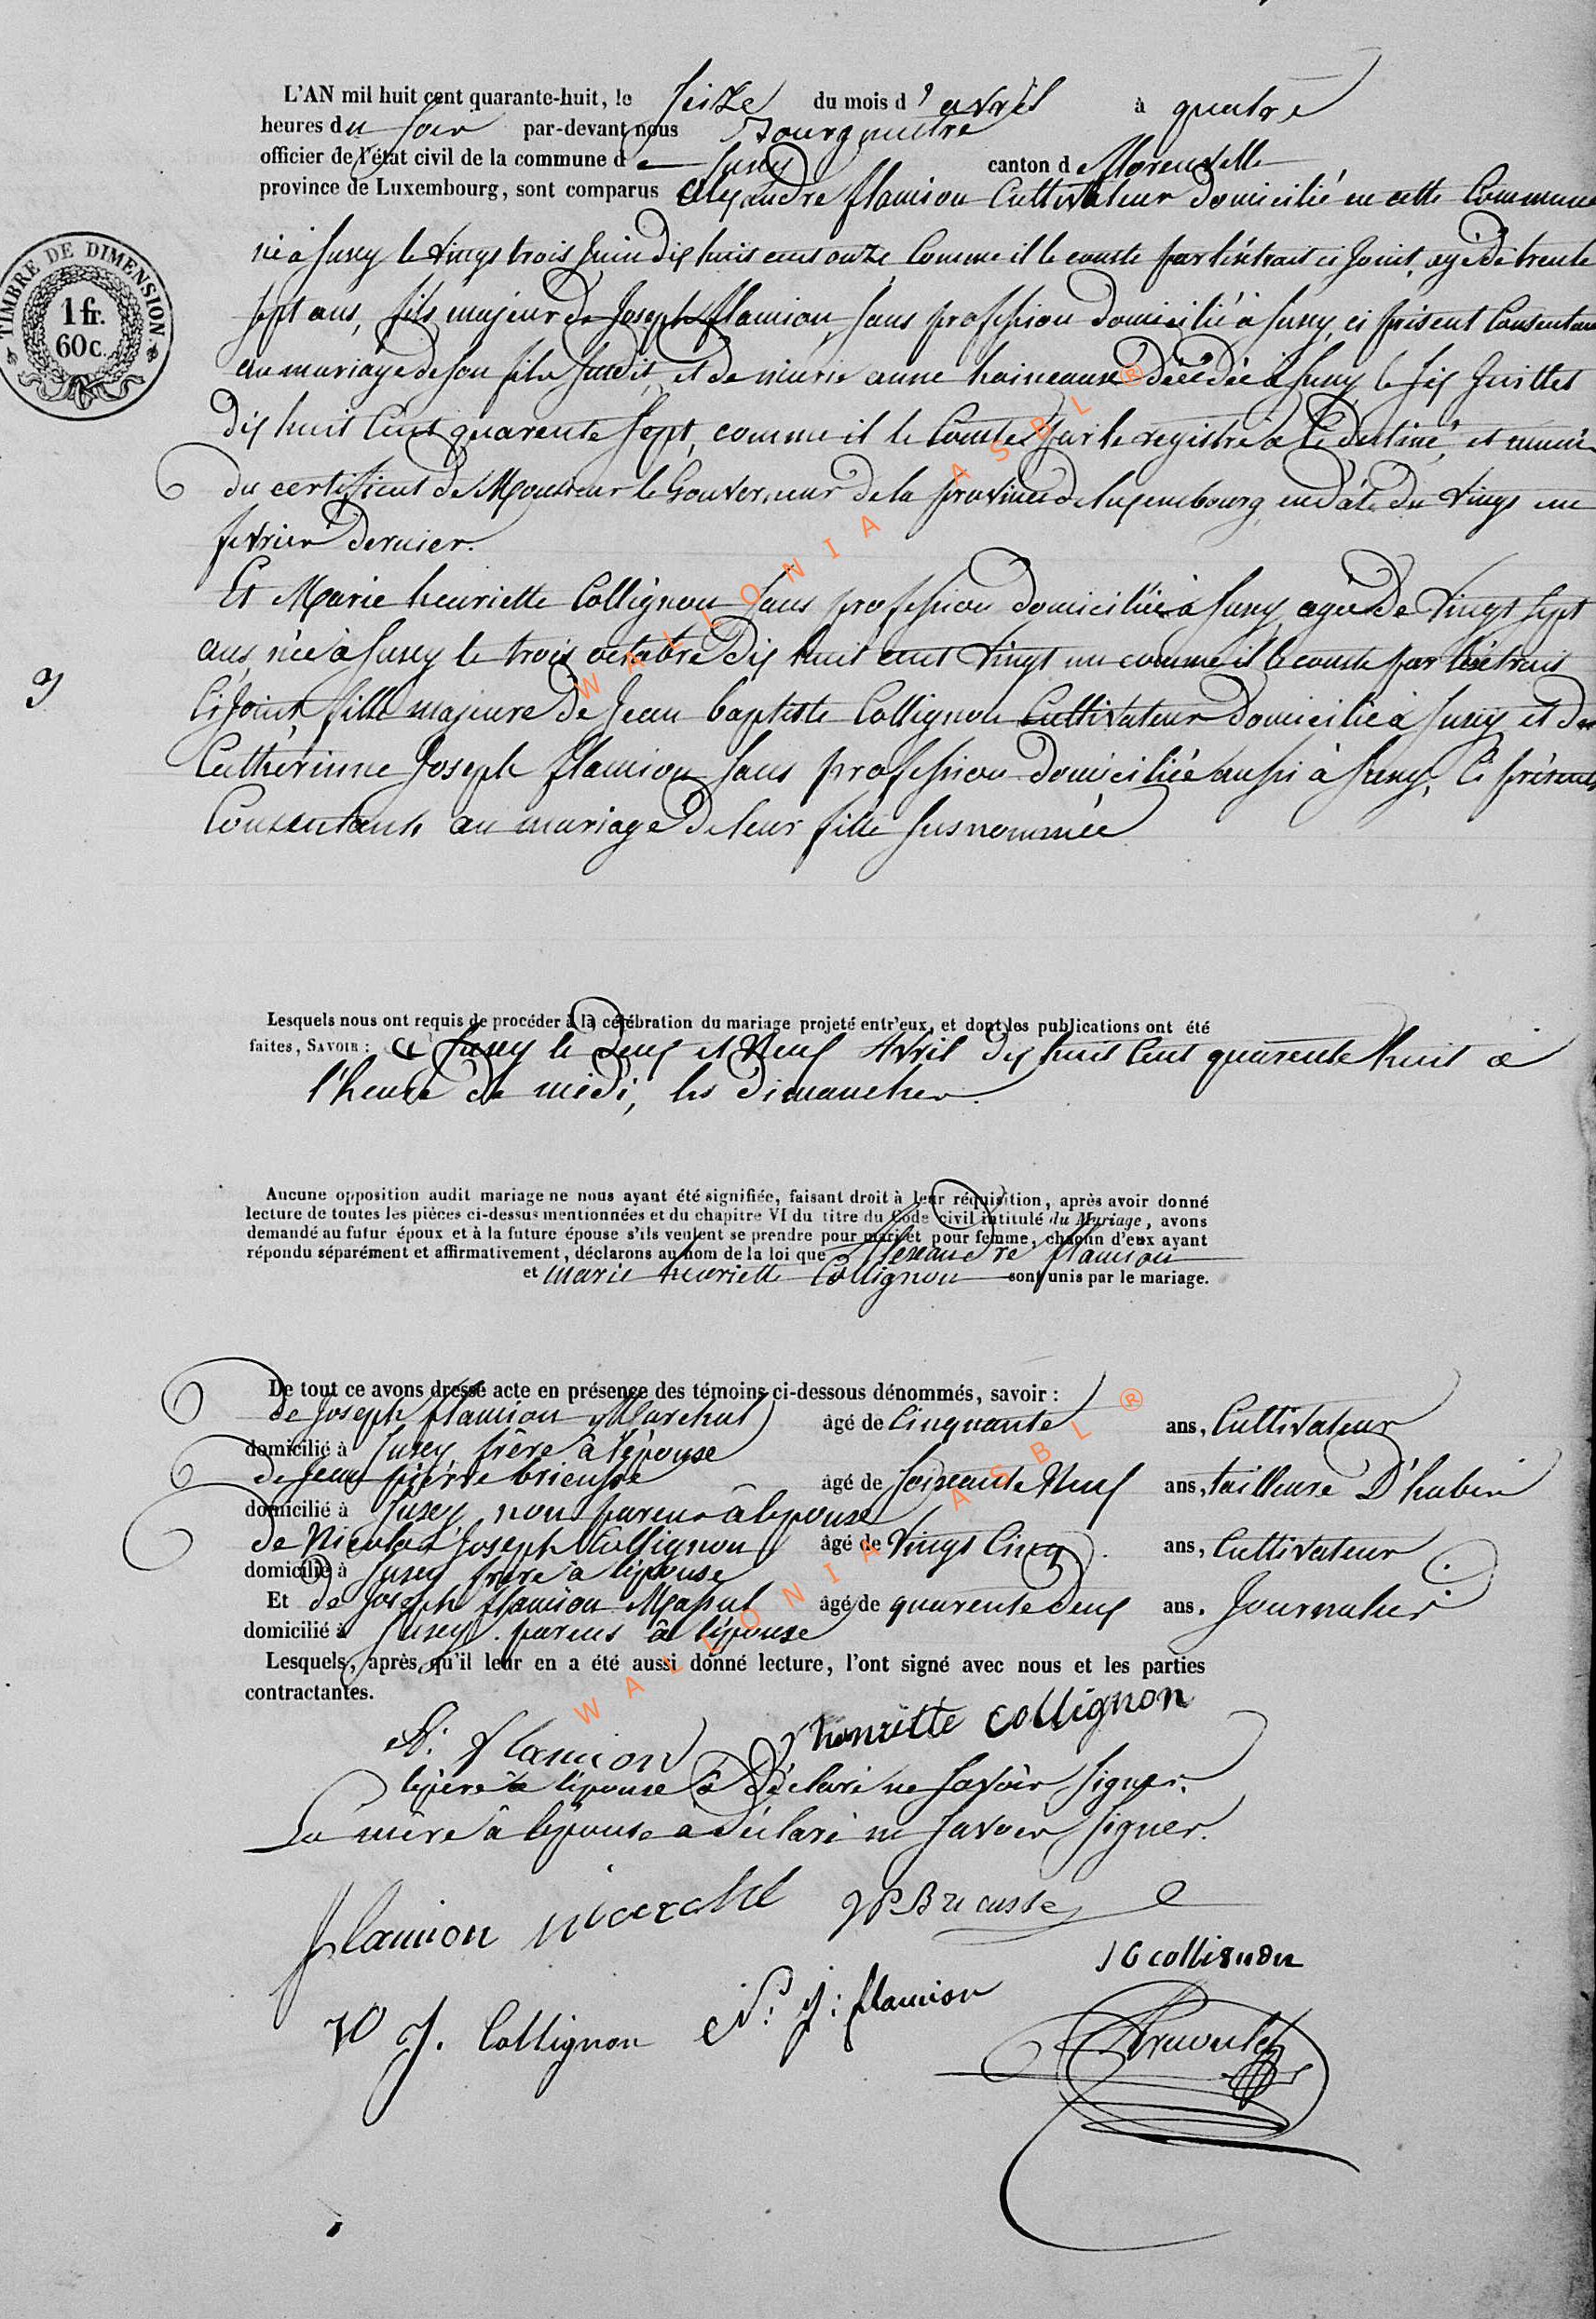 L'AN mil huit cent quarante-huit, le seize du mois d'avril à quatre
heures du soir par-devant nous Bourgmestre
officier de l'état civil de la commune de Suxy canton de florenville
province de Luxembourg, sont comparus Alexandre flamion Cultivateur domicilié en cette Commune
TIMBRE DE DIMENSION.
1 fr.
60 c.
né à Suxy le vingt trois Juin dix huit cent onze Comme il le conste par l'éxtrait ci Joint, agé de trente
sept ans, fils majeur de Joseph flamion, sans profession domicilié à Suxy, ci présent Consentant
au mariage de son fils susdit, et de marie anne haineaux décédée à Suxy, le six Juillet
dix huit Cent quarente sept, comme il le Conste sur le registre à ce destiné, et muni
du certificat de Monsieur le Gouverneur de la province de luxembourg, en date du vingt un
fevrier dernier.
Et Marie henriette Collignon sans profession domiciliée à Suxy, agée de vingt sept
ans, née à Suxy le trois octobre dix huit cent vingt un comme il le conste par l'éxtrait
Ci Joint, fille majeure de Jean baptiste Collignon Cultivateur domicilié à Suxy et de
Cathérinne Joseph flamion sans profession domiciliée aussi à Suxy, Ci présents
Consentants au mariage de leur fille susnommée
Lesquels nous ont requis de procéder à la célébration du mariage projeté entr'eux, et dont les publications ont été
faites, SAVOIR : à Suxy le deux et Neuf Avril dix huit Cent quarente huit à
l'heure de midi, les dimanches.
Aucune opposition audit mariage ne nous ayant été signifiée, faisant droit à leur réquisition, après avoir donné
lecture de toutes les pièces ci-dessus mentionnées et du chapitre VI du titre du Code civil intitulé du Mariage, avons
demandé au futur époux et à la future épouse s'ils veulent se prendre pour mari et pour femme, chacun d'eux ayant
répondu séparément et affirmativement, déclarons au nom de la loi que Alexandre flamion
et marie henriette Collignon sont unis par le mariage.
De tout ce avons dressé acte en présence des témoins ci-dessous dénommés, savoir :
de Joseph flamion Marchal âgé de Cinquante ans, Cultivateur
domicilié à Suxy frère à l'épouse
de Jean pièrre brieusse âgé de soixante Neuf ans, tailleure D'habin
domicilié à Suxy non parens à lepouse
de Nicolas Joseph Collignon âgé de vingt Cinq ans, Cultivateur
domicilié à Suxy frère à l'épouse
Et de Joseph flamion Massul âgé de quarente deux ans. Journalier
domicilié à Suxy. parens à l'épouse
Lesquels, après qu'il leur en a été aussi donné lecture, l'ont signé avec nous et les parties
contractantes.
A: flamion henriette collignon
le père à l'épouse à déclaré ne savoir signer.
La mère à lépouse à déclaré ne savoir signer.
flamion marchl JP Bricusse
J G collignon
N J. Collignon N: J: flamion
WALLONIA ASBL ®
WALLONIA ASBL ®